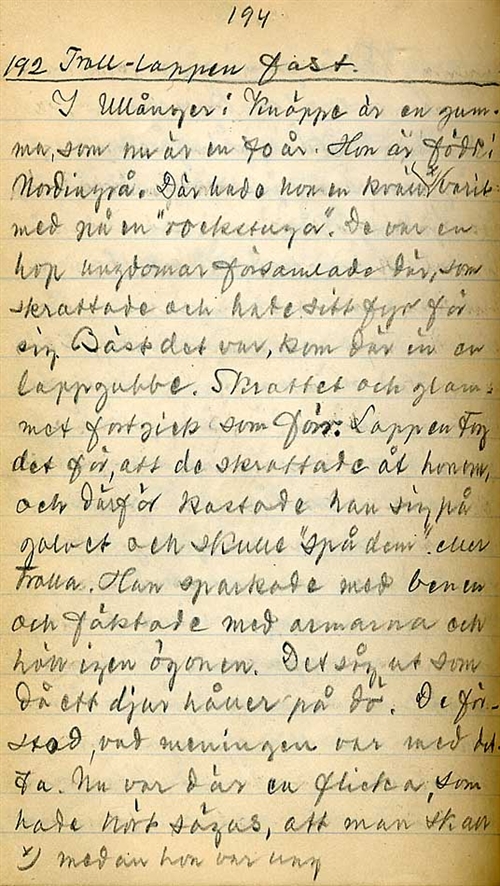 194
192 Troll-lappen fast.
I Ullånger i Knäppe är en gum-
ma, som nu är en 70 år. Hon är född i
Nordingrå. Där hade hon en kväll x) varit
med på en "rockstuga". De var en
hop ungdomar församlade där, som
skrattade och hade sitt fyr för
sig. Bäst det var, kom där in en
lappgubbe. Skrattet och glam-
met fortgick som förr. Lappen tog
det för, att de skrattade åt honom,
och därför kastade han sig på
golvet och skulle "spå dem" eller
trolla. Han sparkade med benen
och fäktade med armarna och
höll igen ögonen. Det såg ut som
då ett djur håller på dö. De för-
stod, vad meningen var med det-
ta. Nu var där en flicka, som
hade hört sägas, att man skall
x) medan hon var ung